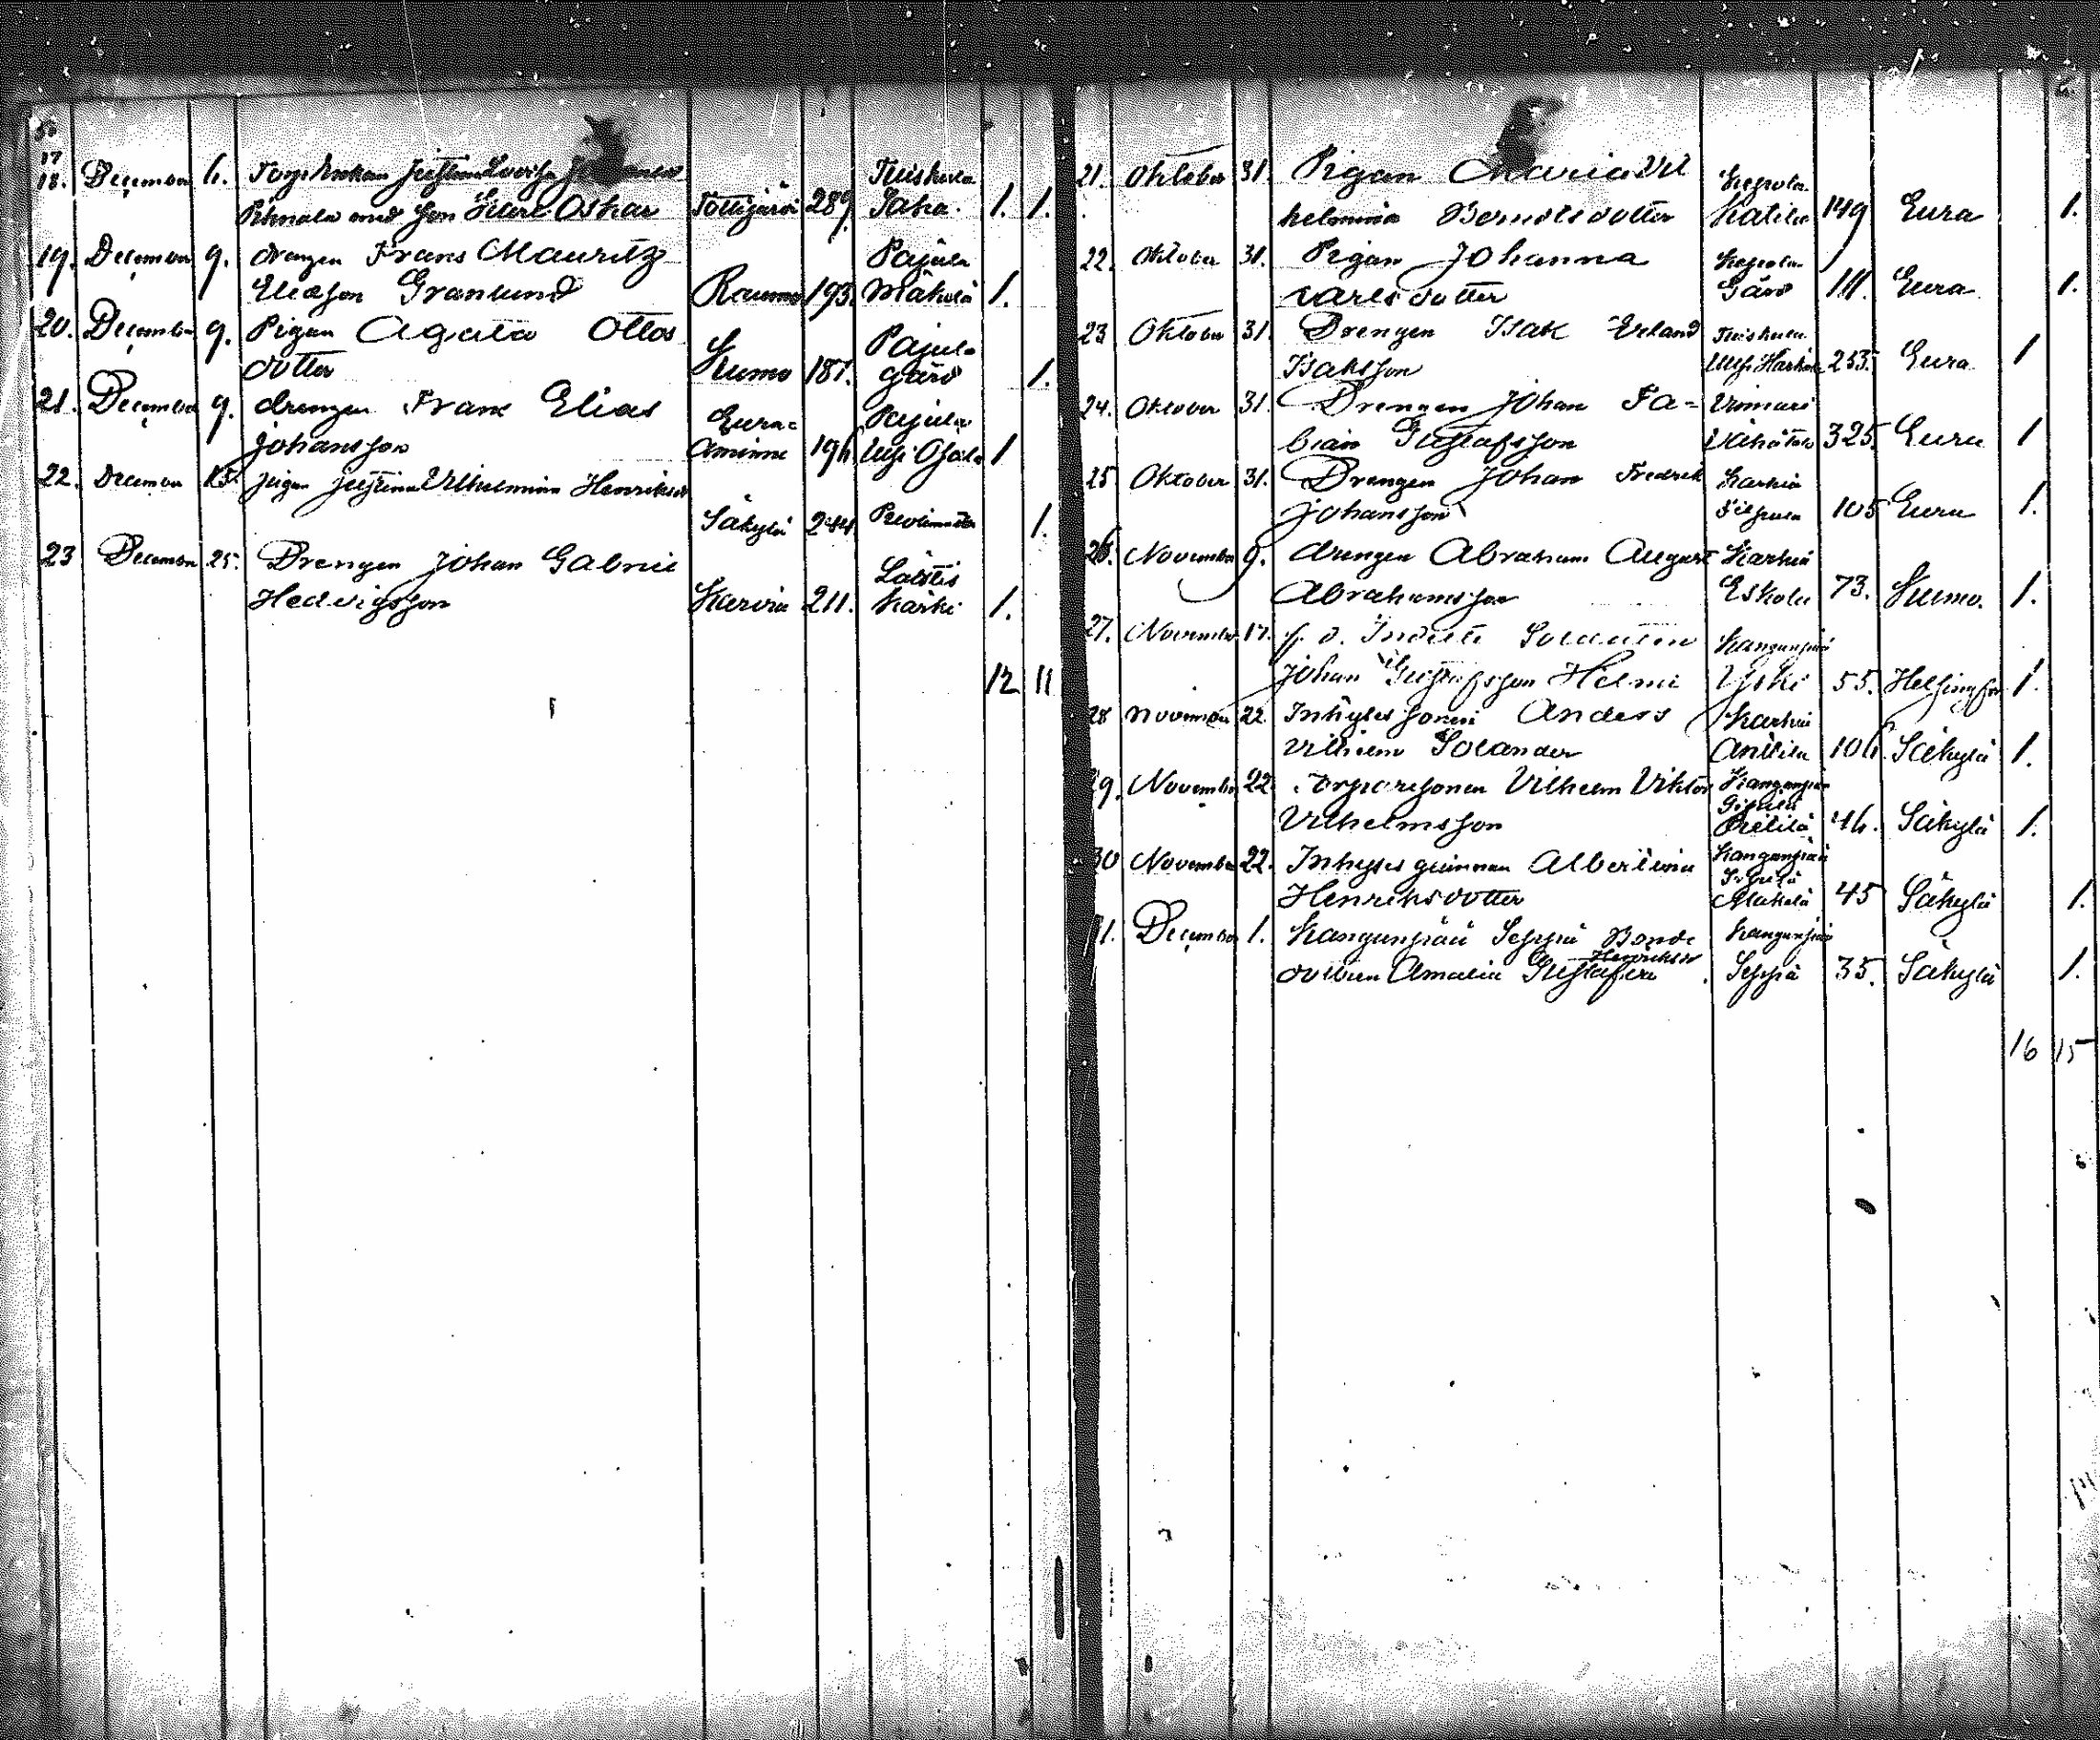 17
18. December 6. Torp Enkan Justina Lovisa
Rihnala med son Karl Oskar Tottijärvi 289. Tuiskula Paha. 1. 1.
19. December 9. drengen Frans Mauritz Pajula
Eliasson Granlund Raumo 193. Mäkelä 1.
20. December 9. Pigan Agata Ottos Pajula
dotter Kumo 187. gård 1.
21. December 9. drengen Frans Elias Eura= Pajula
Johansson åminne 196 Uusi 1
22. December 15. pigan Justina Vilhelmina Henriksd
Säkylä 244 1.
23 December 25. Drengen Johan Gabriel Lähtis
Hedvigsson Karvia 211. Kärki 1.
12 11
21. Oktober 31. Pigan Maria Vil Kepola
helmina Berndtsdotter Katila 149 Eura 1.
22. Oktober 31. Pigan Johanna Kepola
Carlsdotter Gård 111. Eura 1.
23 Oktober 31. Drengen Isak Erland Tuiskula
Isaksson 253. Eura 1
24. Oktober 31. Drengen Johan Fa=
bian Gustafsson Vähätalo 325. Eura 1
25 Oktober 31. Drengen Johan Fredrik Karhia
Johansson 105 Eura 1.
26. November 9. drengen Abraham August Karhia
Abrahamsson Eskola 73. Kumo. 1.
27. November 17. f. d. Indelte Soldaten Kangunpää
Johan Gustafsson Helmi Yski 55. Helsingfors 1.
28 November 22. Inhyses sonen Anders Karhia
Vilhelm Solander Anttila 106. Säkylä 1.
29. November 22 Torparesonen Vilhelm Viktor Kangunpää
Vilhelmsson 46. Säkylä 1.
30 November 22. Inhyses qvinnan Albertina Kangunpää
Henriksdotter Mäkelä 45 Säkylä 1.
31. December 1. Kangunpää Seppä Bonde Kangunpää
Henriksdr
dottren Amalia Gustafva Seppä 35. Säkylä 1.
16 15